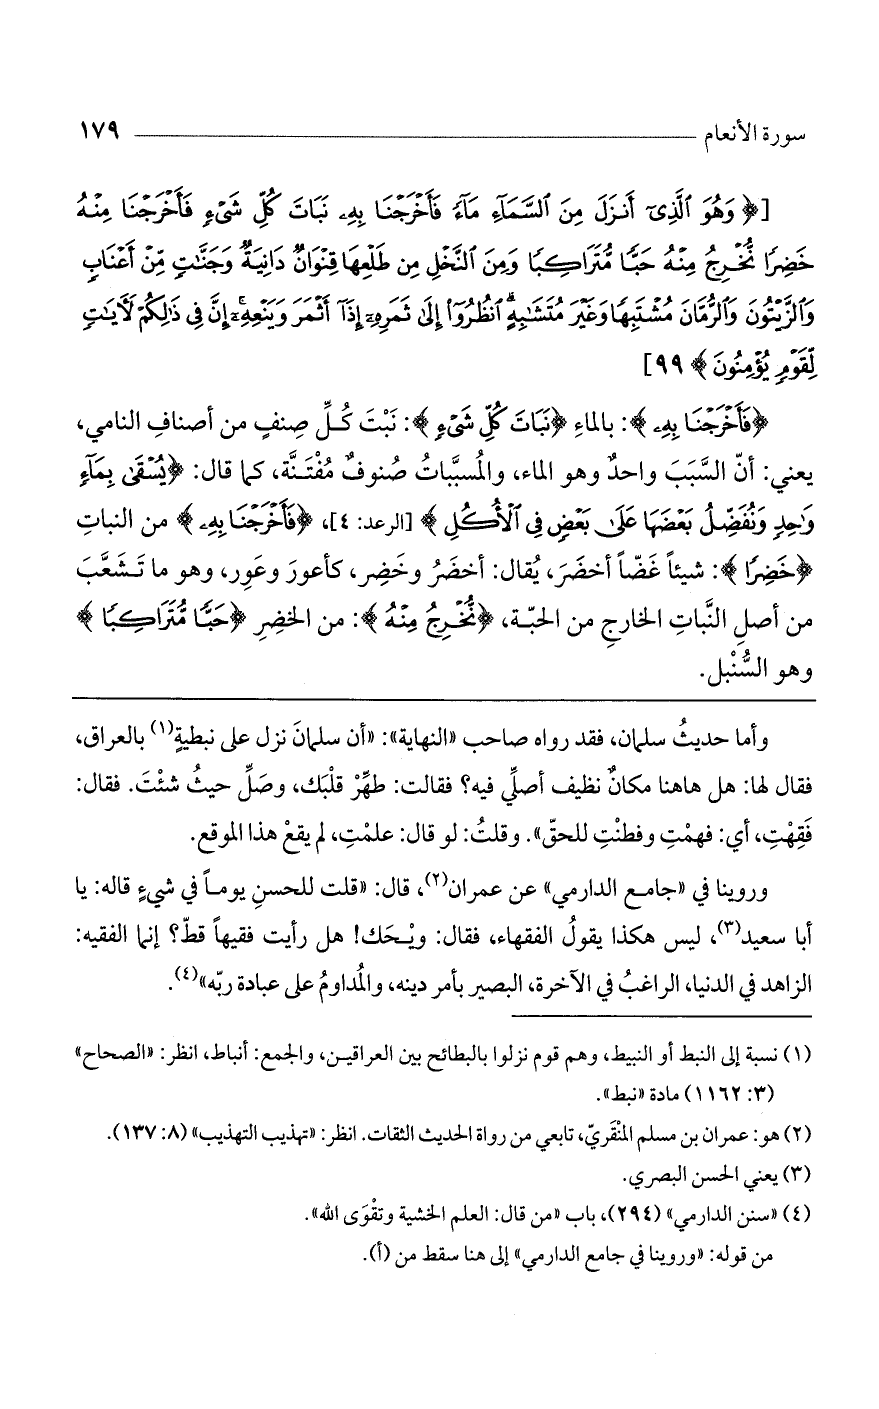 سورة الأنعام ١٧٩
[﴿وَهُوَ ٱلَّذِىٓ أَنزَلَ مِنَ ٱلسَّمَآءِ مَآءً فَأَخْرَجْنَا بِهِۦ نَبَاتَ كُلِّ شَىْءٍ فَأَخْرَجْنَا مِنْهُ
خَضِرًا نُّخْرِجُ مِنْهُ حَبًّا مُّتَرَاكِبًا وَمِنَ ٱلنَّخْلِ مِن طَلْعِهَا قِنْوَانٌ دَانِيَةٌ وَجَنَّٰتٍ مِّنْ أَعْنَابٍ
وَٱلزَّيْتُونَ وَٱلرُّمَّانَ مُشْتَبِهًا وَغَيْرَ مُتَشَٰبِهٍ ۗ ٱنظُرُوٓا۟ إِلَىٰ ثَمَرِهِۦٓ إِذَآ أَثْمَرَ وَيَنْعِهِۦٓ ۚ إِنَّ فِى ذَٰلِكُمْ لَءَايَٰتٍ
لِّقَوْمٍ يُؤْمِنُونَ﴾ ٩٩]
﴿فَأَخْرَجْنَا بِهِۦ﴾: بالماءِ ﴿نَبَاتَ كُلِّ شَىْءٍ﴾: نَبْتَ كُلِّ صِنفٍ من أصنافِ النامي،
يعني: أنّ السَّبَبَ واحدٌ وهو الماء، والمُسبَّباتُ صُنوفٌ مُفْتَنَّة، كما قال: ﴿يُسْقَىٰ بِمَآءٍ
وَٰحِدٍ وَنُفَضِّلُ بَعْضَهَا عَلَىٰ بَعْضٍ فِى ٱلْأُكُلِ﴾ [الرعد: ٤]، ﴿فَأَخْرَجْنَا بِهِۦ﴾ من النباتِ
﴿خَضِرًا﴾: شيئاً غَضّاً أخضَرَ، يُقال: أخضَرُ وخَضِر، كأعورَ وعَوِر، وهو ما تَشعَّبَ
من أصلِ النَّباتِ الخارجِ من الحبّة، ﴿نُّخْرِجُ مِنْهُ﴾: من الخضِرِ ﴿حَبًّا مُّتَرَاكِبًا﴾
وهو السُّنْبل.
وأما حديثُ سلمان، فقد رواه صاحب «النهاية»: «أن سلمانَ نزل على نبطيةٍ(١) بالعراق،
فقال لها: هل هاهنا مكانٌ نظيف أصلِّي فيه؟ فقالت: طهِّرْ قلْبَك، وصَلِّ حيثُ شئْتَ. فقال:
فَقِهْتِ، أي: فهمْتِ وفطنْتِ للحقّ». وقلتُ: لو قال: علمْتِ، لم يقعْ هذا الموقع.
وروينا في «جامع الدارمي» عن عمران(٢)، قال: «قلت للحسنِ يوماً في شيءٍ قاله: يا
أبا سعيد(٣)، ليس هكذا يقولُ الفقهاء، فقال: ويْحَك! هل رأيت فقيهاً قطّ؟ إنما الفقيه:
الزاهد في الدنيا، الراغبُ في الآخرة، البصير بأمر دينه، والمُداومُ على عبادة ربّه»(٤).
(١) نسبة إلى النبط أو النبيط، وهم قوم نزلوا بالبطائح بين العراقين، والجمع: أنباط، انظر: «الصحاح»
(٣: ١١٦٢) مادة «نبط».
(٢) هو: عمران بن مسلم المنْقَريّ، تابعي من رواة الحديث الثقات. انظر: «تهذيب التهذيب» (٨: ١٣٧).
(٣) يعني الحسن البصري.
(٤) «سنن الدارمي» (٢٩٤)، باب «من قال: العلم الخشية وتقْوَى الله».
من قوله: «وروينا في جامع الدارمي» إلى هنا سقط من (أ).